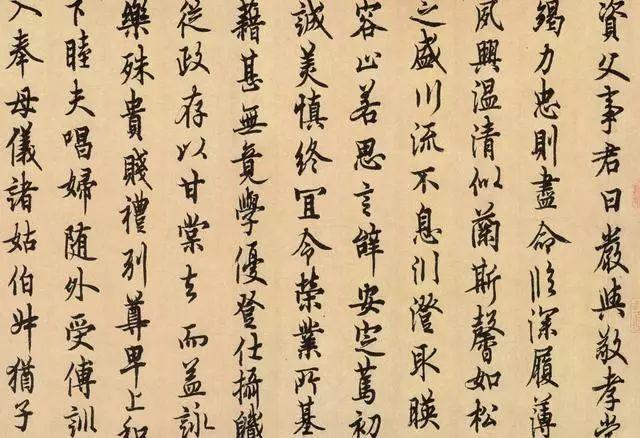 資父事君曰嚴與敬孝當
竭力忠則盡命臨深履薄
夙興溫清似蘭斯馨如松
之盛川流不息淵澄取暎
容止若思言辭安定篤初
誠美慎終宜令榮業所基
藉甚無竟學優登仕攝職
從政存以甘棠去而益詠
樂殊貴賤禮別尊卑上和
下睦夫唱婦随外受傅訓
入奉母儀諸姑伯叔猶子